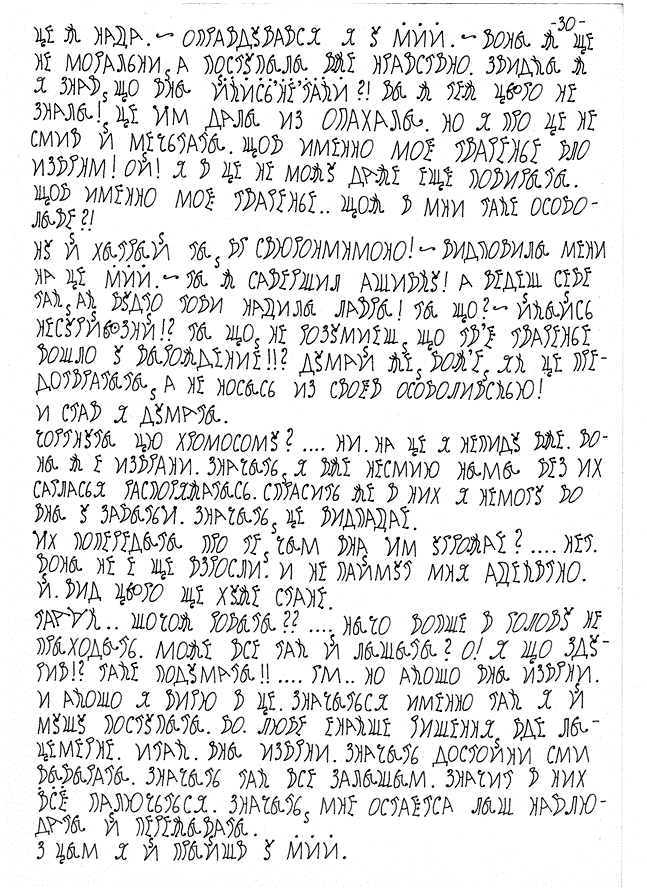 -30-
ЦЕ Ж НАДА.~ ОПРАВДУВАВСЯ Я У МІЙ.~ ВОНА Ж ЩЕ
НЕ МОРАЛЬНИ, А ПОСТУПАЛА ВЖЕ НРАВСТВНО. ЗВИДКА Ж
Я ЗНАВ, ЩО ВНА ЙКИСЬ'НЕ'ТАКИ?! ВИ Ж ТЕЖ ЦЬОГО НЕ
ЗНАЛИ!, ЦЕ ИМ ДАЛИ ИЗ ОПАХАЛА. НО Я ПРО ЦЕ НЕ
СМИВ Й МЕЧЬТАТИ. ЩОБ ИМЕННО МОЕ ТВАРЕНЬЕ БЛО
ИЗБРНИМ! ОЙ! Я В ЦЕ НЕ МОЖУ ДАЖЕ ЕЩЕ ПОВИРИТИ.
ЩОБ ИМЕННО МОЕ ТВАРЕНЬЕ.. ЩОЖ В МНИ ТАКЕ ОСОБО-
ЛИВЕ?!
НУ Й ХИТРИЙ ТИ, БГ СВЮРОНМНМОНО! ~ ВИДПОВИЛА МЕНИ
НА ЦЕ МІЙ.~ ТИ Ж САВЕРШИЛ АШИБКУ! А ВЕДЕШ СЕБЕ
ТАК, АК БУДТО ТОБИ НАДИЛИ ЛАВРИ! ТИ ЩО?~ ЙКИЙСЬ
НЕСУРЙОЗНЙ!? ТИ ЩО, НЕ РОЗУМИЕШ, ЩО ТВ'Е ТВАРЕНЬЕ
ВОШЛО У ВИРОЖДЕНИЕ!!? ДУМАЙ ЖЕ, БОЖ'Е, ЯК ЦЕ ПРЕ-
ДОТВРАТИТИ, А НЕ НОСИСЬ ИЗ СВОЕВ ОСОБОЛИВСКЬЮ!
И СТАВ Я ДУМАТИ.
ЧОРТНУТИ ЦЮ ХРОМОСОМУ? .... НИ. НА ЦЕ Я НЕПИДУ ВЖЕ. ВО-
НА Ж Е ИЗБРАНИ. ЗНАЧИТЬ, Я ВЖЕ НЕСМИЮ НАМИ БЕЗ ИХ
САГЛАСЬЯ РАСПОРЯЖАТАСЬ. СПРАСИТЬ ЖЕ В НИХ Я НЕМОГУ БО
ВНА У ЗАБИТЬИ. ЗНАЧИТЬ, ЦЕ ВИДПАДАЕ.
ИХ ПОПЕРЕДИТИ ПРО ТЕ, ЧАМ ВНА ИМ УГРОЖАЕ? .... НЕТ.
ВОНА НЕ Е ЩЕ ВЗРОСЛИ. И НЕ ПАЙМУТ МНЯ АДЕКВТНО.
Й. ВИД ЦЬОГО ЩЕ ХУЖЕ СТАНЕ.
ТАРАК.. ШОЧОЖ РОБИТИ?? ...., НАЧО ВОПШЕ В ГОЛОВУ НЕ
ПРАХОДИТЬ. МОЖЕ ВСЕ ТАК Й ЛАШИТИ? О! Я ЩО ЗДУ-
РИВ!? ТАКЕ ПОДУМАТИ!! .... ГМ.. НО АКОШО ВНА ИЗБРНИ.
И АКОШО Я ВИРЮ В ЦЕ. ЗНАЧАТЬСЯ ИМЕННО ТАК Я Й
МУШУ ПОСТУПАТИ. БО. ЛЮБЕ ЕНАКШЕ РИШЕННЯ, БДЕ ЛИ-
ЦЕМЕРНЕ. ИТАК. ВНА ИЗБРНИ. ЗНАЧИТЬ ДОСТОЙНИ СМИ
ВИБИРАТИ. ЗНАЧИТЬ ТАК ВСЕ ЗАЛАШАМ. ЗНАЧИТ В НИХ
ВСЁ ПАЛЮЧЬТЬСЯ. ЗНАЧИТЬ, МНЕ ОСТАЕТСА ЛАШ НАБЛЮ-
ДАТИ Й ПЕРЕЖАВАТИ.
З ЦАМ Я Й ПРАЙШВ У МІЙ.